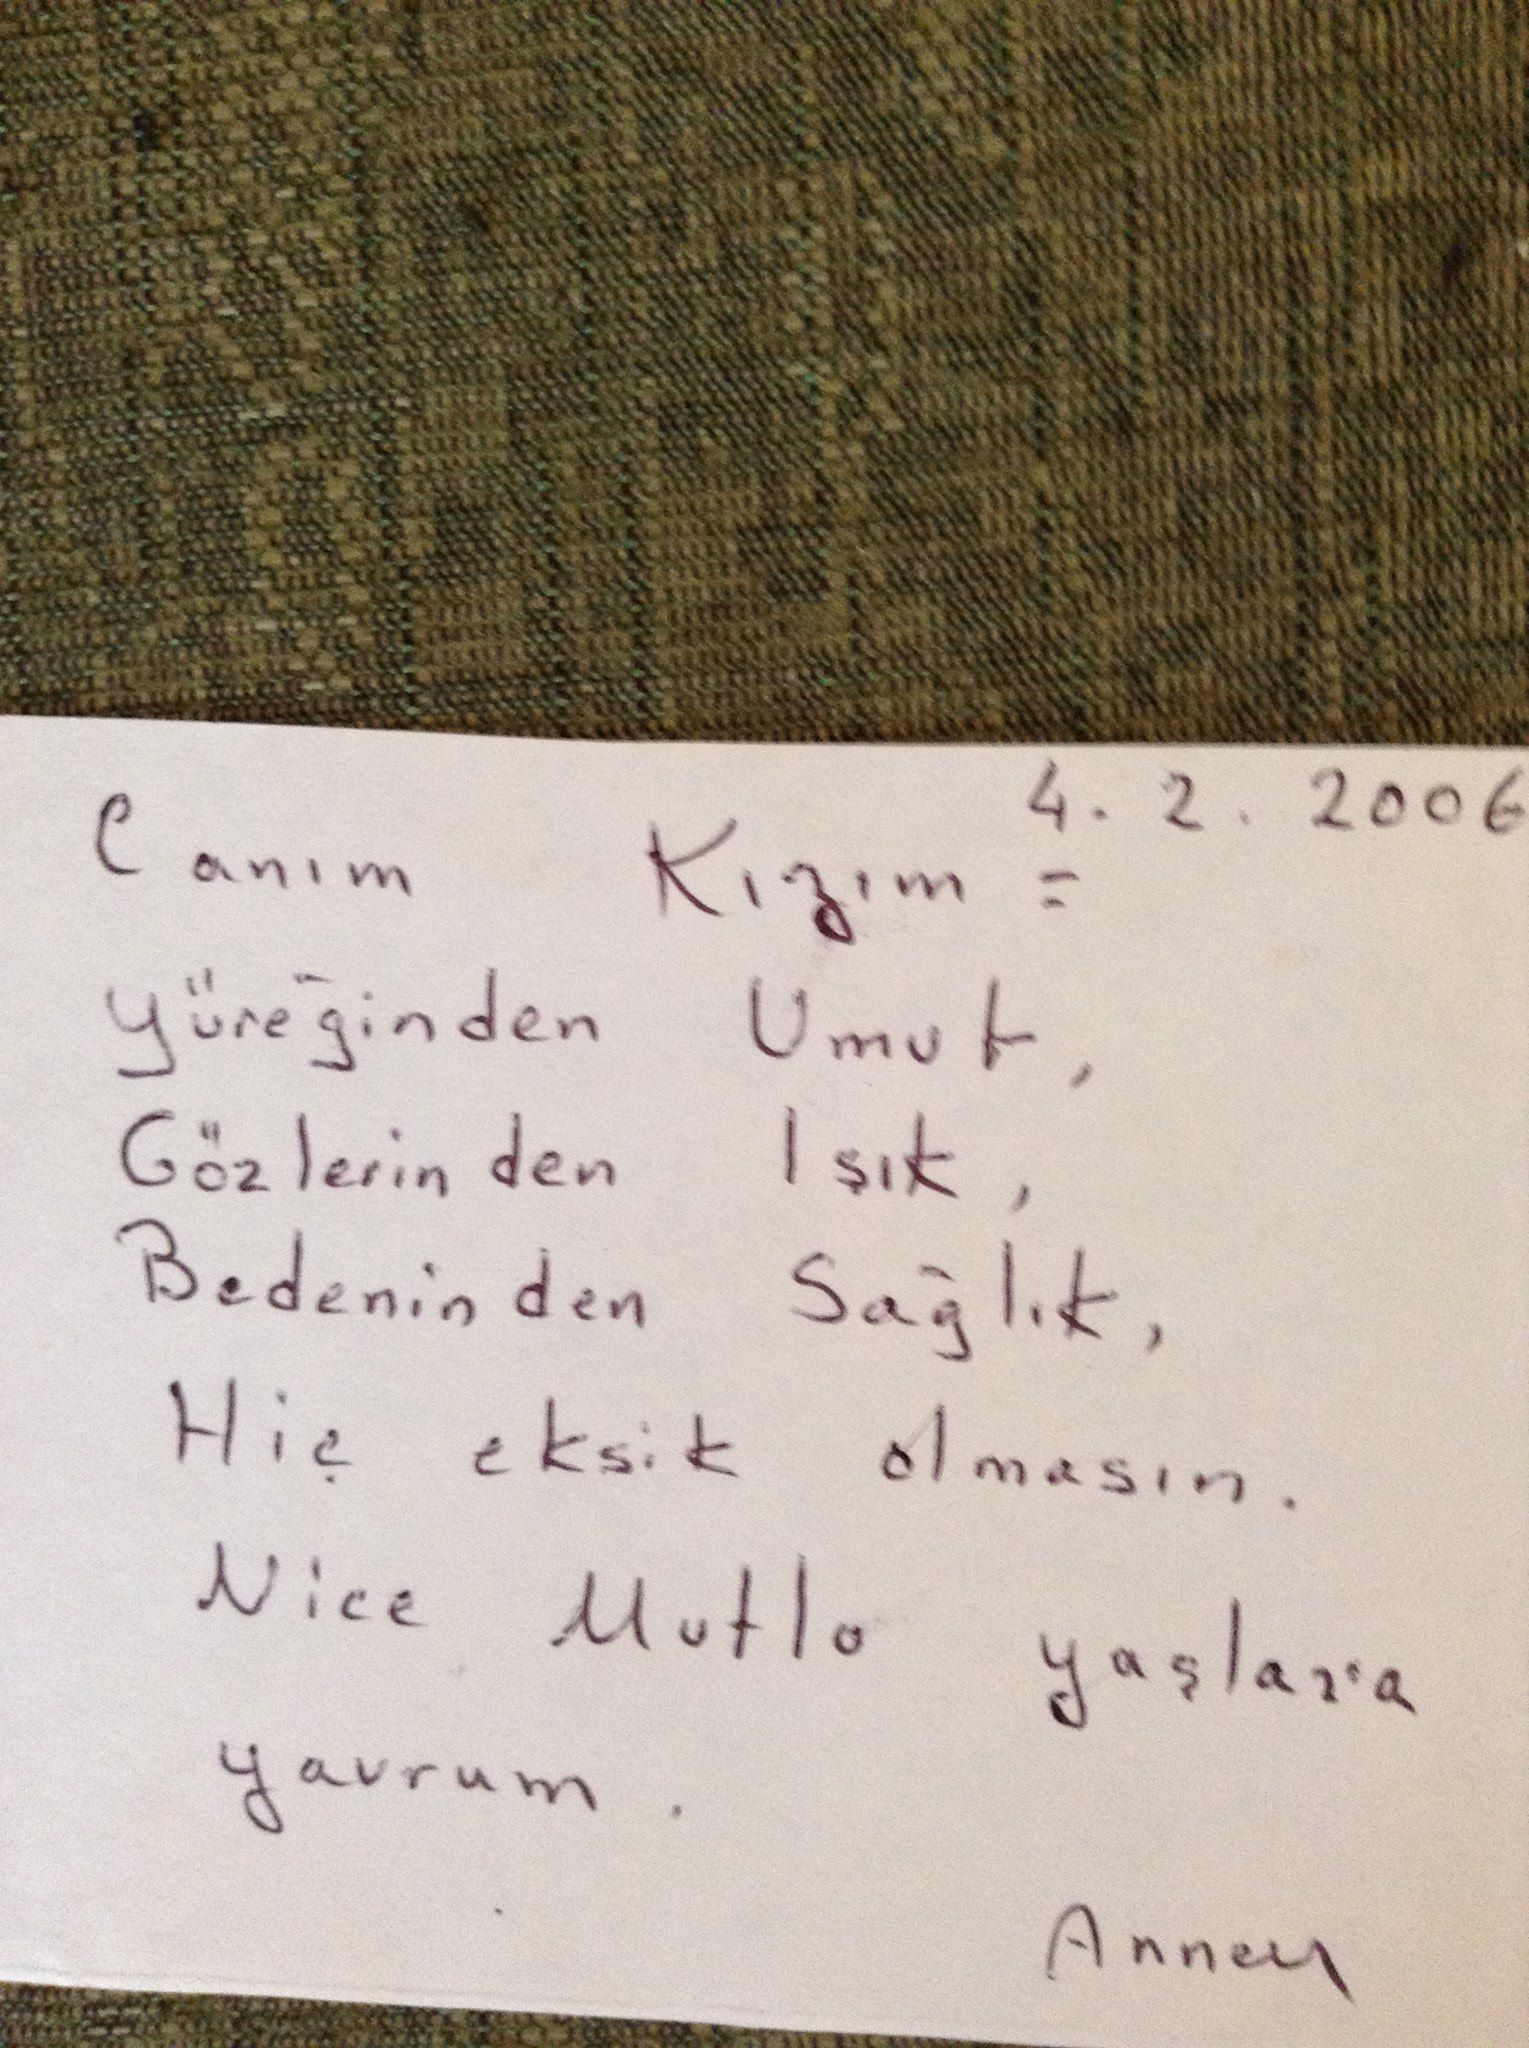 4.2.2006
Canım Kızım =
Yüreğinden Umut,
Gözlerinden Işık,
Bedeninden Sağlık,
Hiç eksik olmasın.
Nice Mutlu yaşlara
yavrum.
Annen